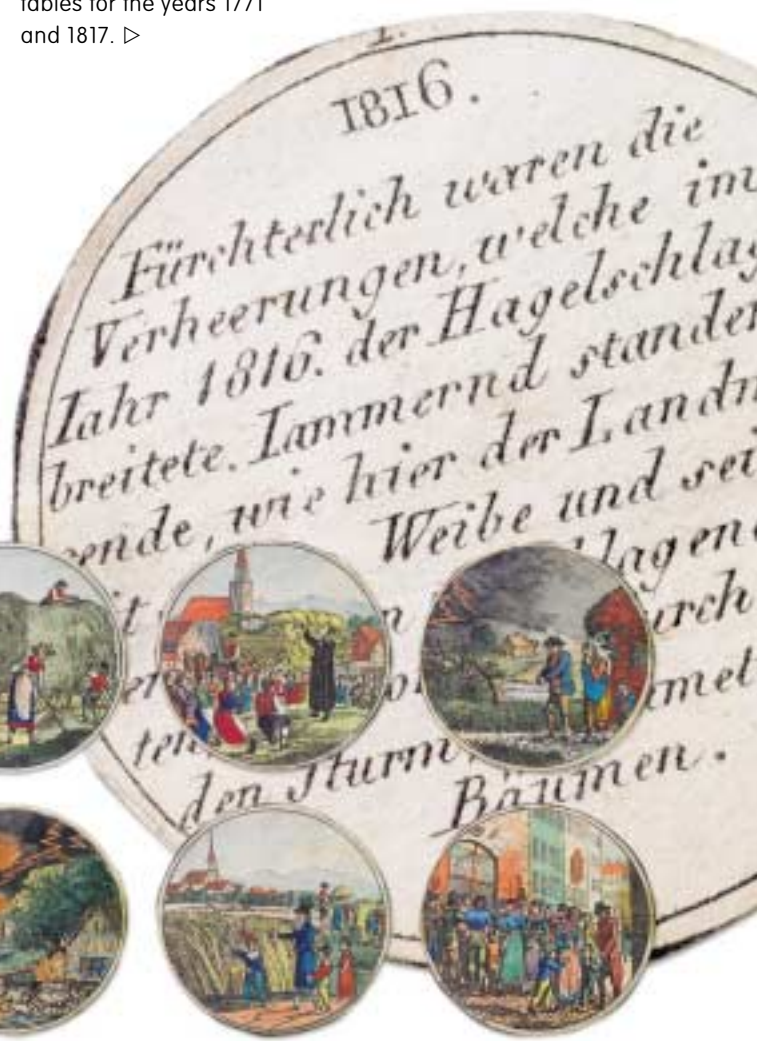 tables for the years 1771
and 1817. ▷
1.
1816.
Fürchterlich waren die
Verheerungen, welche im
Iahr 1816. der Hagelschlag
breitete. Iammernd standen
wie hier der Landm
Weibe und sei
lagen
urch
met
ten,
den Sturm
Bäumen.